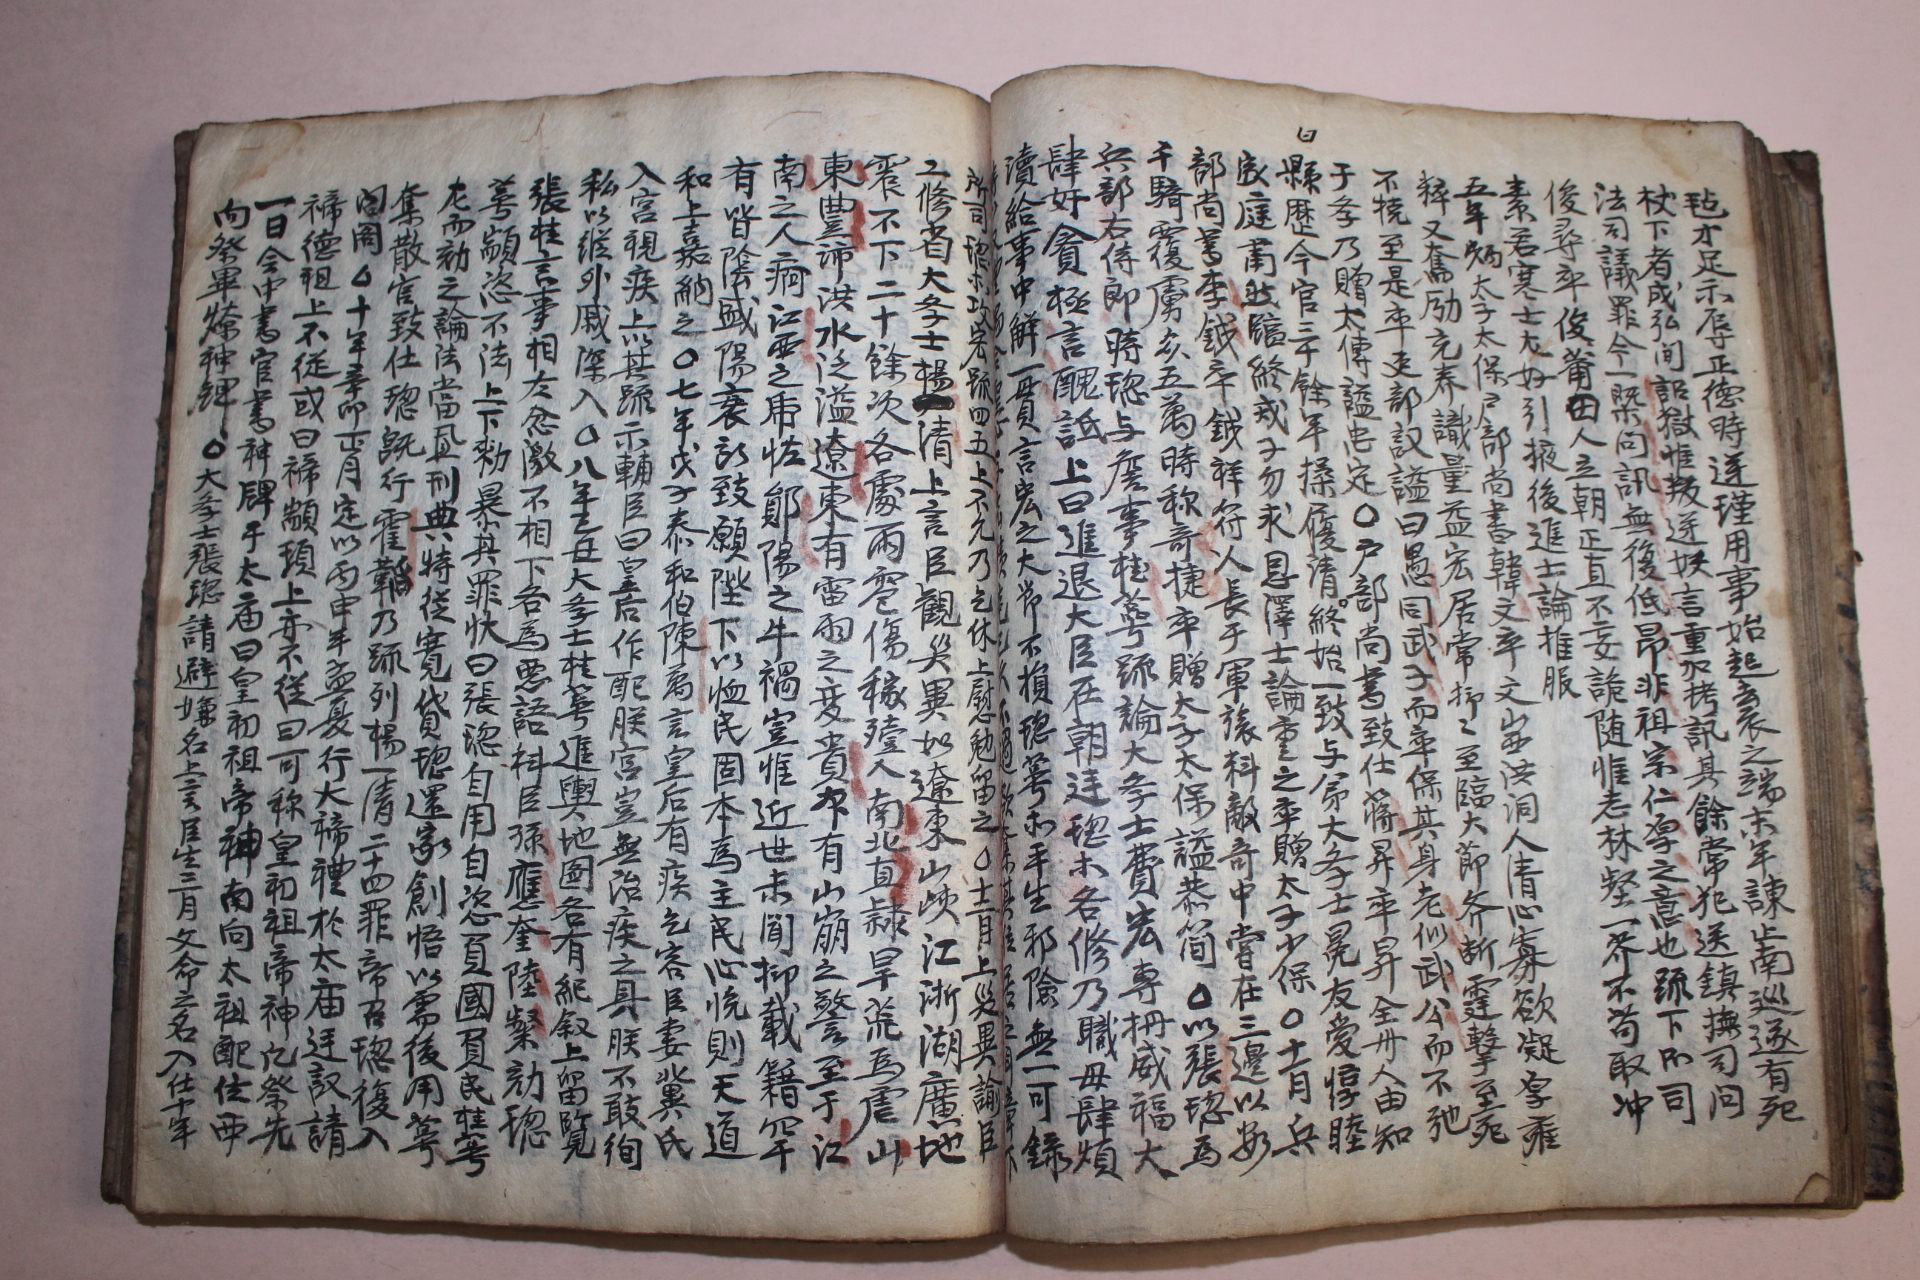 曰
毡才足示辱正德時逆瑾用事始起去衣之端末年諫止南巡逐有死
杖下者成弘间詔獄惟叛逆妖言重加拷訊其餘常犯送鎮撫司问
法司議罪今一槩问訊無復低昂非祖宗仁厚之意也疏下所司
俊尋卒俊莆田人立朝正直不妄詭随惟志林壑一介不苟取冲
素若寒士尤好引掖後進士論推服
五年炳太子太保尸部尚書韓文卒文山西洪洞人清心寡欲凝字雍
粹又奮励充养識量益宏居常抑〻至臨大節斧断霆擊至死
不撓至是卒吏部议謚曰愚同武子而卒保其身老似武公而不弛
于学乃贈太傅謚忠定〇户部尚書致仕蒋昇卒昇全州人由知
縣歷今官三十餘年操履清終始一致与弟大学士冕友爱惇睦
家庭肅然臨終戒子勿求恩澤士論重之卒贈太子少保〇十月兵
部尚書李鉞卒鉞祥符人長于軍旅料敵奇中嘗在三邊以数
千騎覆虜众五萬時称奇捷卒贈太子太保謚恭简〇以張璁為
兵部右侍郎時璁与詹事桂萼疏論大学士費宏專擅威福大
肆奸貪極言醜詆上曰進退大臣在朝廷璁木各修乃職毋肆煩
瀆給事中解一貫言宏之大節不損璁萼亦平生邪險無一可録
所司璁木攻宏疏四五上不允乃乞休上慰勉留之〇十二月上災異諭臣
工修省大学士楊一清上言臣觀災異如遼東山峽江浙湖廣地
震不下二十餘次各處雨雹傷稼殪人南北直隷旱荒為虐山
東豊沛洪水泛溢遼東有雷羽之变貴州有山崩之警至于江
南之人痾江西之馬怪鄖陽之牛禍宣惟近世未聞抑載籍罕
有皆陰盛陽衰所致願陛下以恤民固本為主民心悦則天道
和上嘉納之〇七年戊子泰和伯陳萬言皇后有疾乞容臣妻冀氏
入宮視疾上以其疏示輔臣曰皇后作配朕宮豈無治疾之具朕不敢徇
私以縱外戚深入〇八年己丑大学士桂萼進輿地圖各有紀叙上留覽
張桂言事相左忿激不相下各為惡語科臣孫應奎陸粲劾璁
萼顓恣不法上下勅暴其罪快曰張璁自用自恣負國負民桂萼
尤而効之論法當寘刑典特從寛貸璁還家創悟以需後用萼
奪散官致仕璁既行霍韜乃疏列楊一清二十四罪帝召璁復入
内阁〇十年辛卯正月定以丙申年孟夏行大禘禮於太庙廷议請
禘德祖上不從或曰禘顓頊上亦不從曰可称皇初祖帝神凡祭先
一日令中書官書神牌于太庙曰皇初祖帝神南向太祖配位西
向祭畢燎神牌〇大学士張璁請避嫌名上言臣生三月父命之名入仕十年